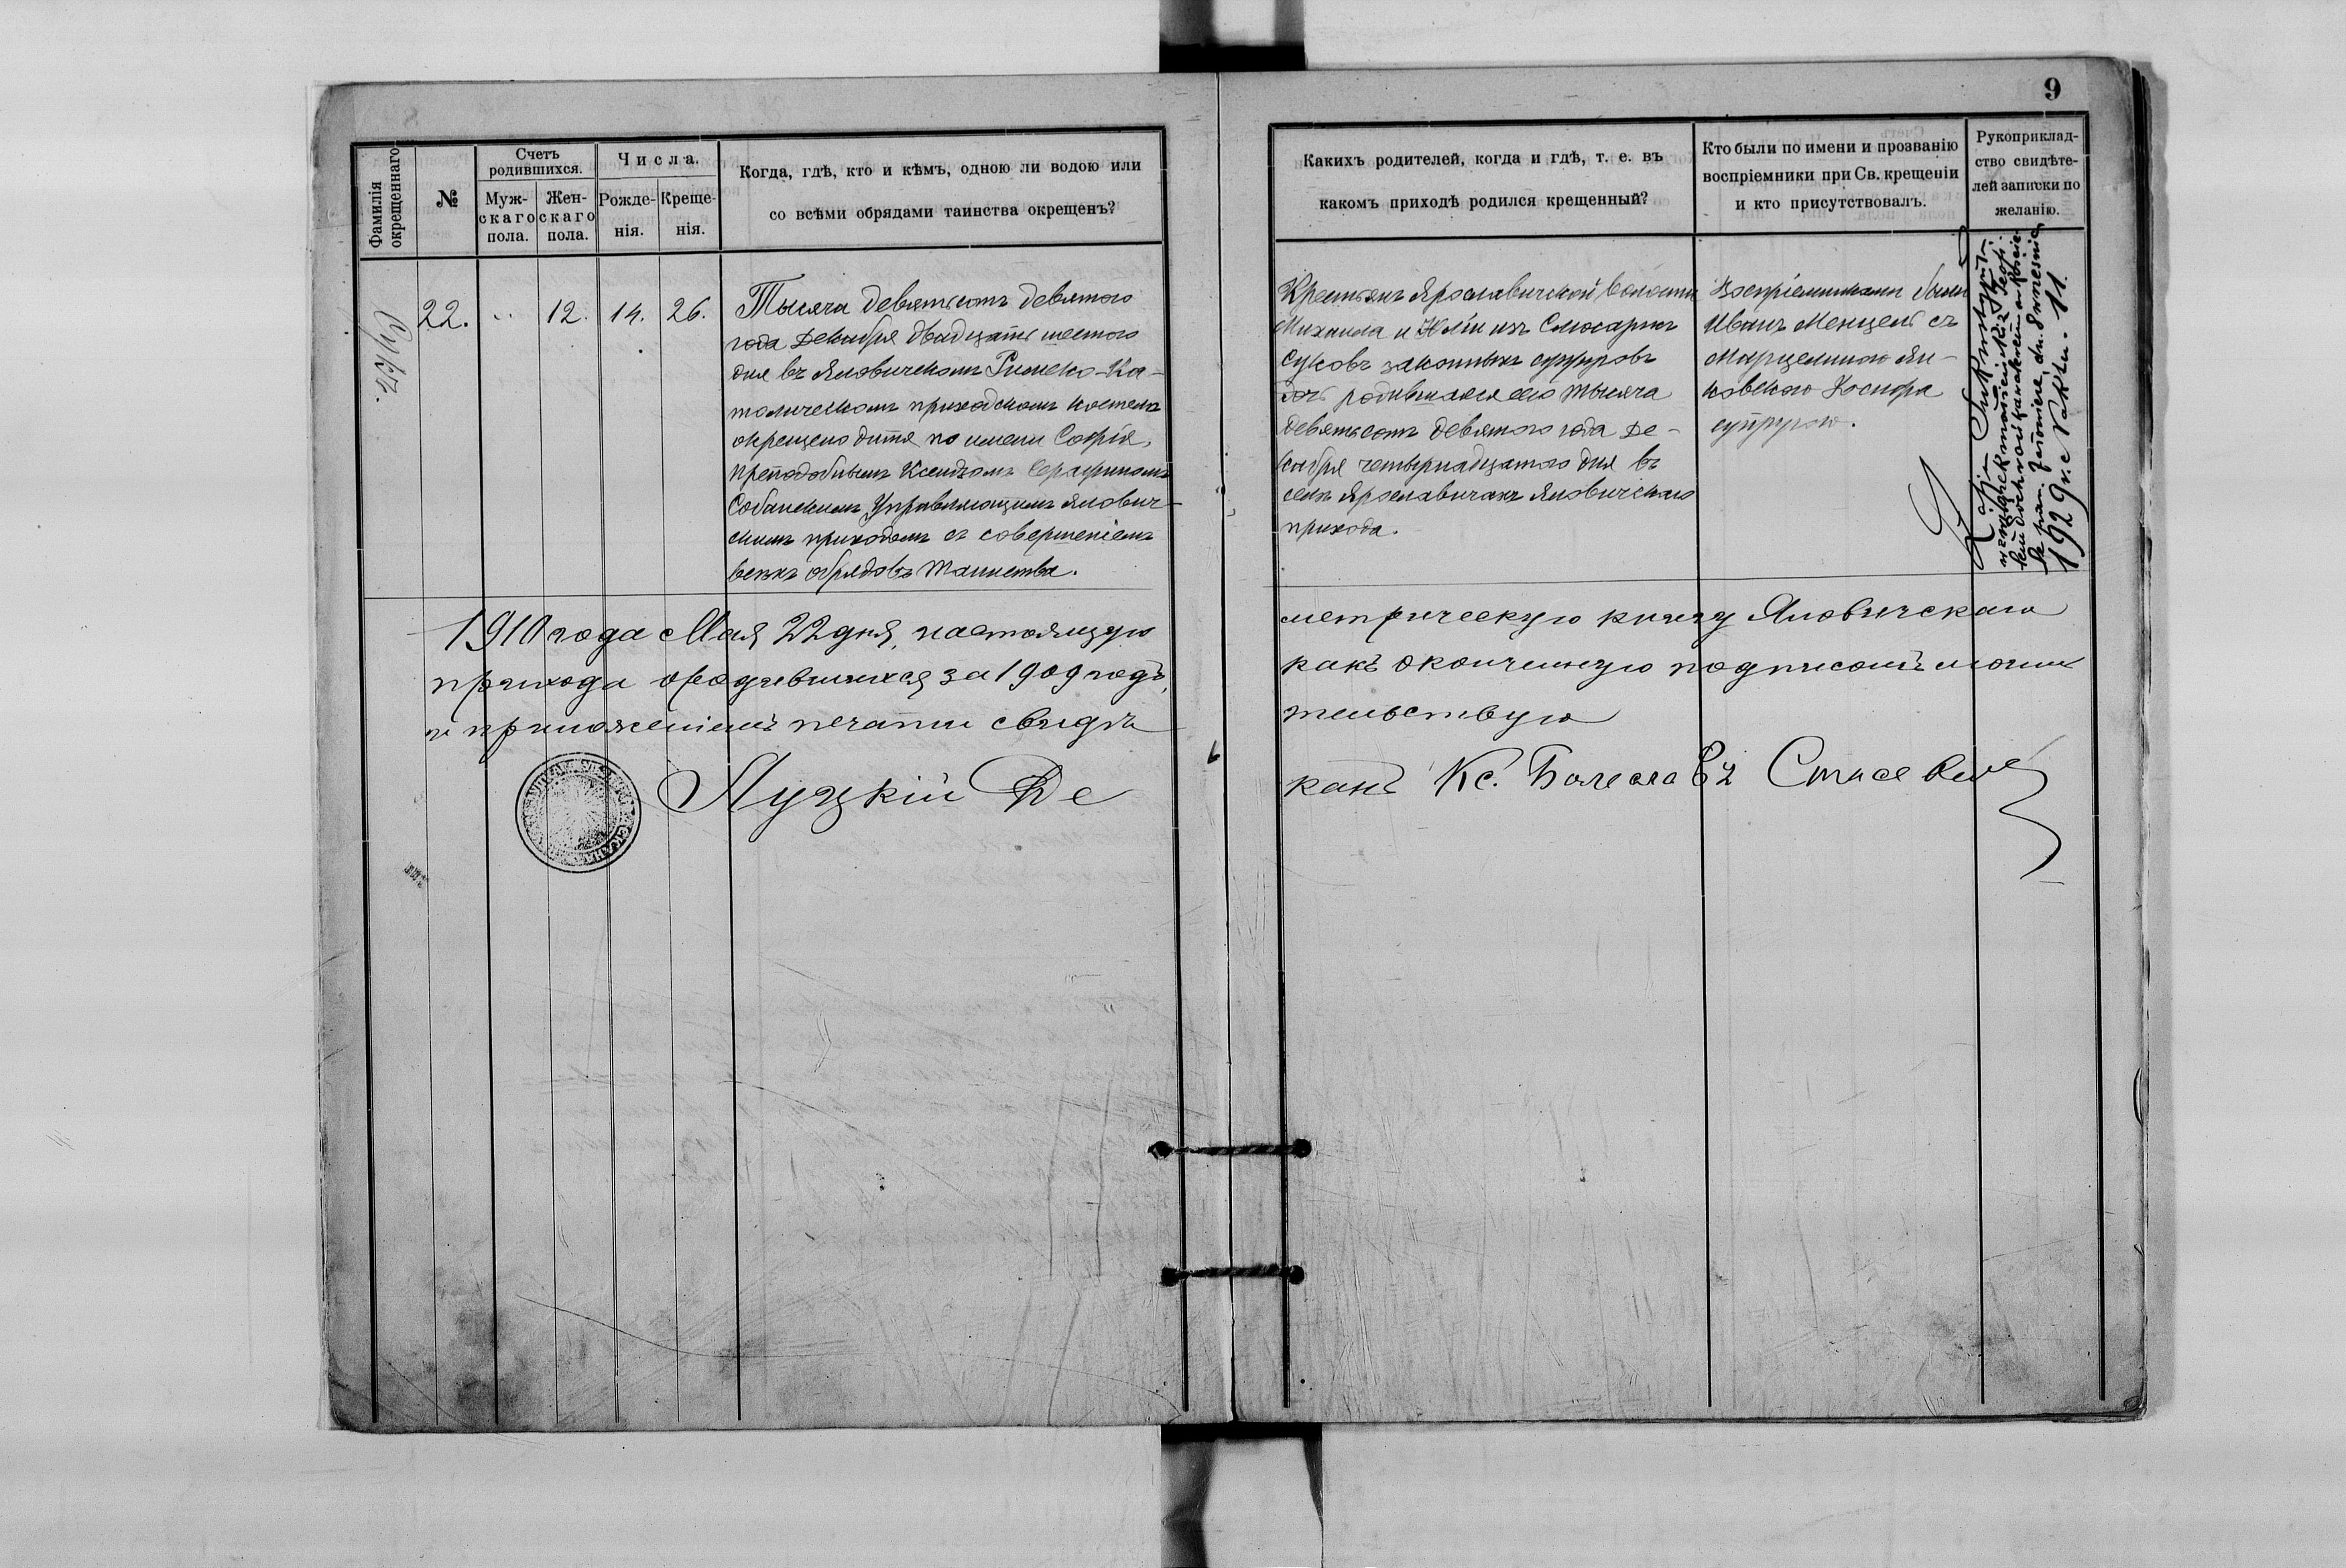 9
Фамилія
окрещеннаго
№
Счетъ
родившихся.
Муж-
скаго
пола.
Жен-
скаго
пола.
Числа.
Рожде-
нія.
Креще-
нія.
Когда, гдѣ, кто и кѣмъ, одною ли водою или
со всѣми обрядами таинства окрещенъ?
Сукъ.
22.
12.
14.
26.
Тысяча девятьсотъ девятого
года Декабря двадцать шестого
дня въ Яловичскомъ Римско-Ка-
толическомъ приходскомъ костелѣ
окрещено дитя по имени Софія,
преподобнымъ Ксендзомъ Серафимомъ
Собанскимъ Управляющимъ Ялович-
скимъ приходомъ съ совершеніемъ
всѣхъ обрядовъ таинства.
Какихъ родителей, когда и гдѣ, т. е. въ
какомъ приходѣ родился крещенный?
Крестьянъ Ярославичской волости
Михаила и Юліи изъ Слюсарукъ
Суковъ законныхъ супруговъ
дочь родившаяся сего тысяча
девятьсотъ девятого года Де-
кабря четырнадцатого дня въ
селѣ Ярославичахъ Яловичскаго
прихода.
Кто были по имени и прозванію
воспріемники при Св. крещеніи
и кто присутствовалъ.
Воспріемниками были
Иванъ Менцель съ
Марцелиною Ян-
ковскою Іосифа
супругою.
Рукоприклад-
ство свидѣте-
лей записки по
желанію.
Zofja Suk
1929 r.
1910 года Мая 22 дня, настоящую метрическую книгу Яловичскаго
прихода о родившихся за 1909 годъ, какъ оконченную подписомъ моимъ
и приложеніемъ печати свидѣтельствую
Луцкій Деканъ Кс. Болеславъ